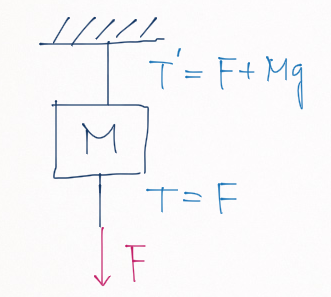 T' = F + Mg
M
T = F
F